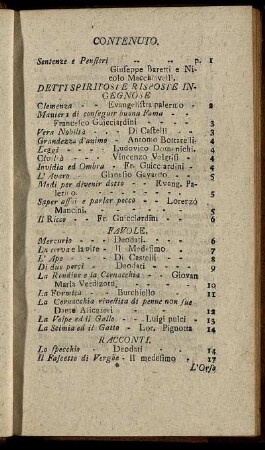 CONTENUTO.
Sentenze e Pensieri - - - p. 1
Giuseppe Baretti e Ni-
colo Macchiavelli.
DETTI SPIRITOSI E RISPOSTE IN-
GEGNOSE
Clemenza - - Evangelista palermo - 2
Maniera di conseguir buona Fama -
Francesco Guicciardini - - 3
Vera Nobiltà - - Di Castelli - - 3
Grandezza d'animo - Antonio Bottarelli- 4
Leggi - - - Ludovico Domenichi. 4
Civiltà - - Vincenzo Valgrisi - 4
Invidia ed Ombra - Fr. Guicciardini - 4
L' Avaro - - Giansio Gavardo - 5
Modi per divenir dotto - - Evang. Pa-
lermo. - - - - 5
Saper assai e parlar pocco - - Lorenzo
Mancini. - - - - 5
Il Ricco - - Fr. Guicciardini - - 6
FAVOLE.
Mercurio - - Deodati. - - 6
La cerva e la vite - Il Medesimo - 7
L' Ape - - Di Castelli - - 8
Di due porci - - Deodati - - 9
La Rondine e la Cornacchia - Giovan
Maria Verdizoti, - - - 10
La Formica - - Burchiello - - 11
La Cornacchia rivestita di penne non sue
Dante Aligieri - - - 12
La Volpe ed il Gallo - - Luigi pulci - 13
La Scimia ed il Gatto - Lor. Pignotta 14
RACCONTI.
Lo specchio - Deodati - - 14
Il Fascetto di Verghe - Il medesimo - 17
L'Orso